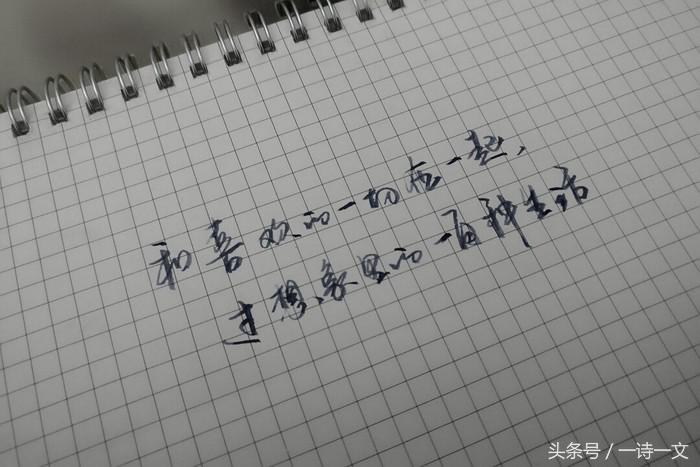 和喜欢的一切在一起,
过想象里的一百种生活
头条号 / 一诗一文